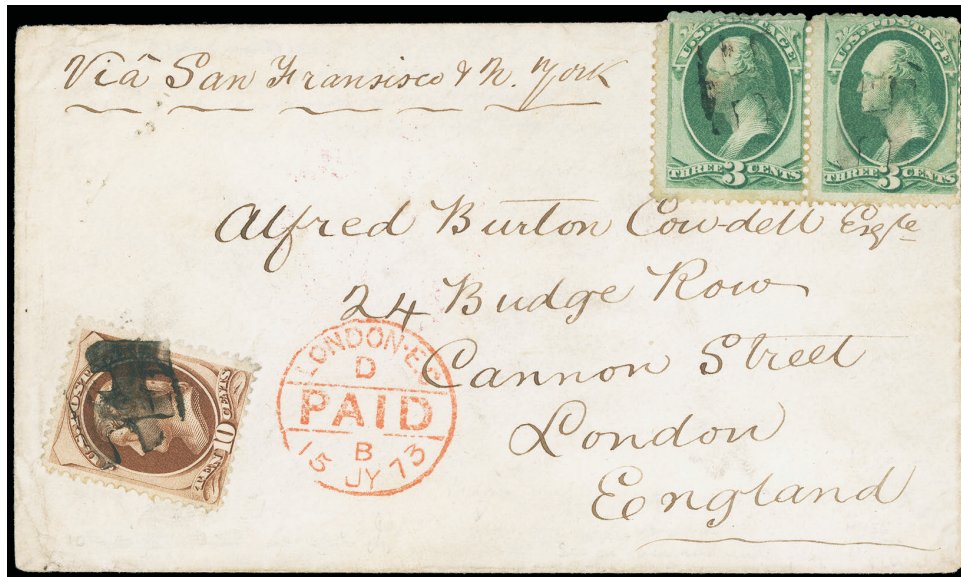 Viâ San Fransisco & N. York
U.S. POSTAGE
THREE 3 CENTS
U.S. POSTAGE
THREE 3 CENTS
Alfred Burton Cowdell Esqre
24 Budge Row
Cannon Street
London
England
LONDON·EC
D
PAID
B
15 JY 73
10 CENTS